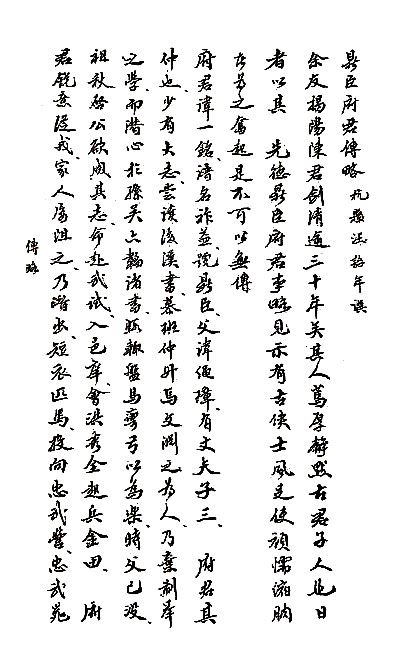 鼎臣府君傳略 杭縣 汪 年 譔
余友揭陽陳君劍清逾三十年矣其人篤厚靜默古君子人也日
者以其 先德鼎臣府君事略見示有古俠士風足使頑懦滌胸
為之奮起是不可以無傳
府君諱一銘譜名祚益號鼎臣父諱 有丈夫子三 府君其
仲也少有大志嘗讀後漢書慕班仲升馬文淵之為人乃棄制舉
之學而潛心於孫吳六韜諸書暇輒盤馬彎弓以為樂時父已沒
祖秋 公欲成其志命赴武試入邑庠會洪秀全起兵金田 府
君銳意從戎家人屢沮之乃潛出短衣匹馬投向忠武營忠武
傳略